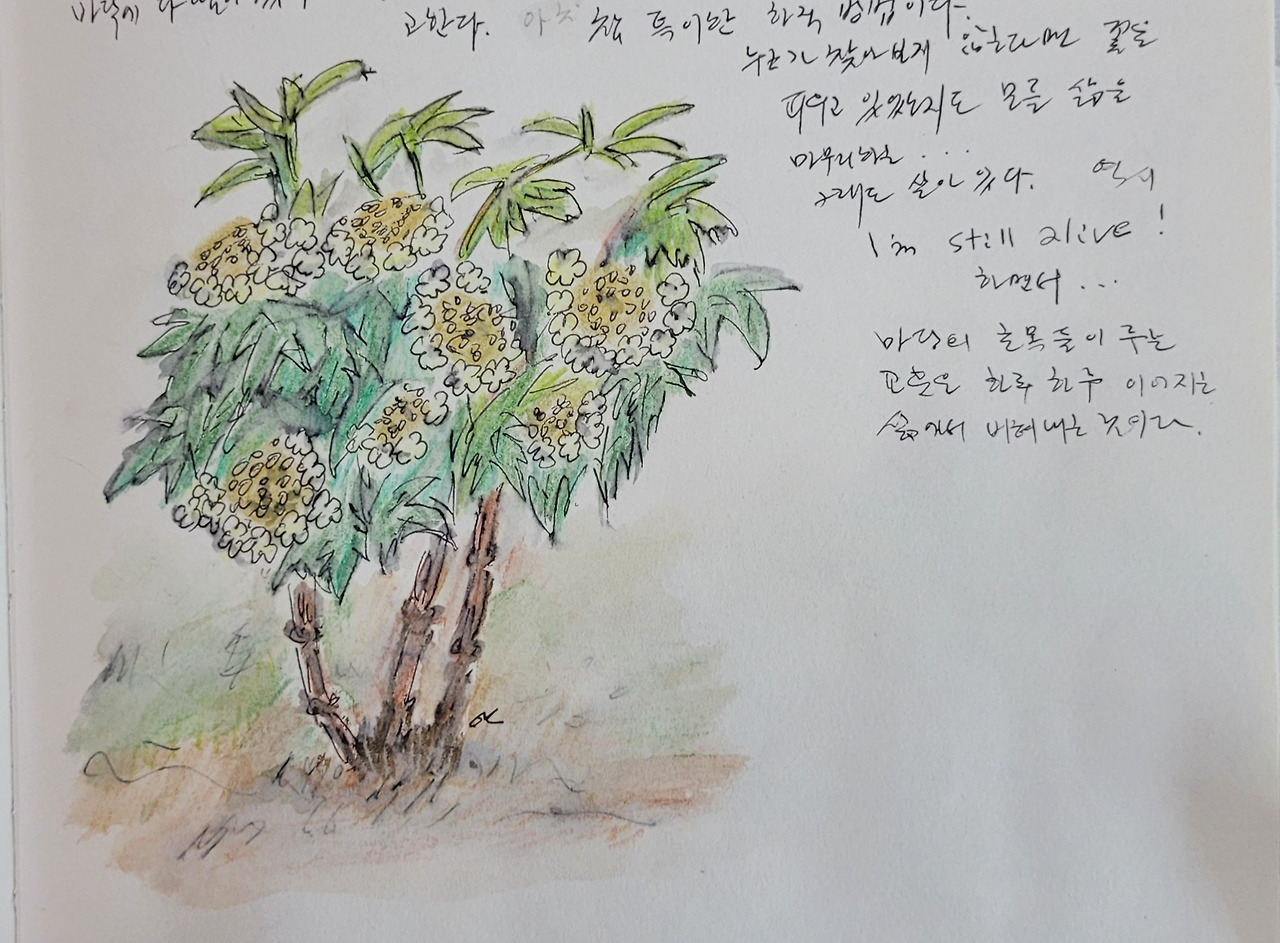 바닥에 다
고한다. 아치 참 특이한 화적 방법이다.
누군가 찾아보게 않는다면 꽃을
피우고 있었는지도 모를 삶을
마무리하는 . . .
그래도 살아 있다. 역시
I'm still alive !
하면서 . . .
마당의 초목들이 주는
교훈은 하루 하루 이어지는
삶에서 비쳐내는 것이다.